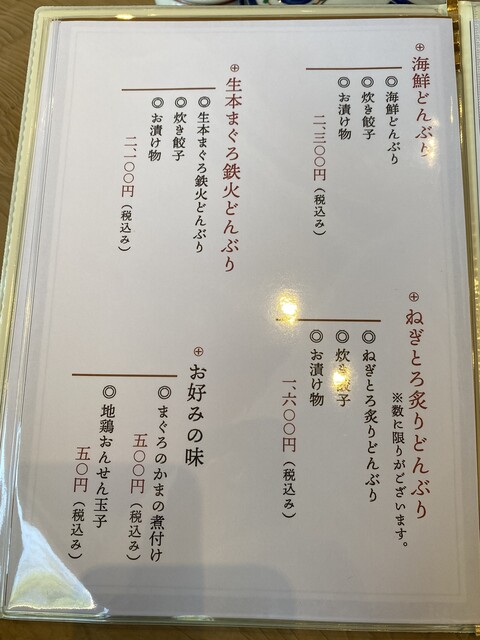 ⊕ 海鮮どんぶり
◎ 海鮮どんぶり
◎ 炊き餃子
◎ お漬け物
二、三〇〇円(税込み)
⊕ ねぎとろ炙りどんぶり
※数に限りがございます。
◎ ねぎとろ炙りどんぶり
◎ 炊き餃子
◎ お漬け物
一、六〇〇円(税込み)
⊕ 生本まぐろ鉄火どんぶり
◎ 生本まぐろ鉄火どんぶり
◎ 炊き餃子
◎ お漬け物
二、一〇〇円(税込み)
⊕ お好みの味
◎ まぐろのかまの煮付け
五〇〇円(税込み)
◎ 地鶏おんせん玉子
五〇円(税込み)